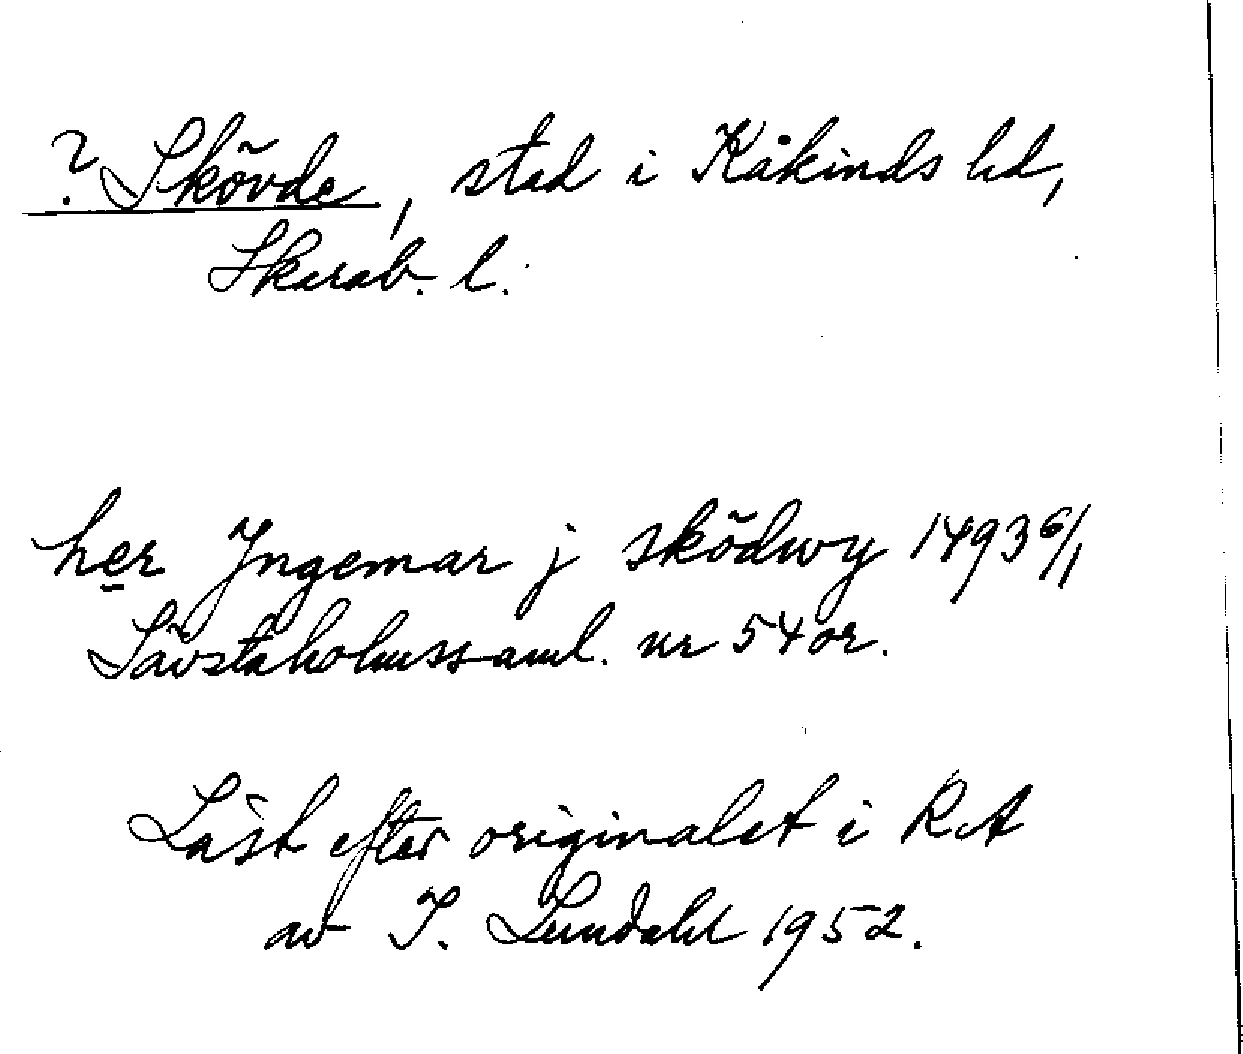 ? Skövde, stad i Kåkinds hd,
Skarab. l.
her Ingemar j sködwy 1493 6/1
Sävstaholmssaml. nr 54 or.
Läst efter originalet i RA
av I. Lundahl 1952.